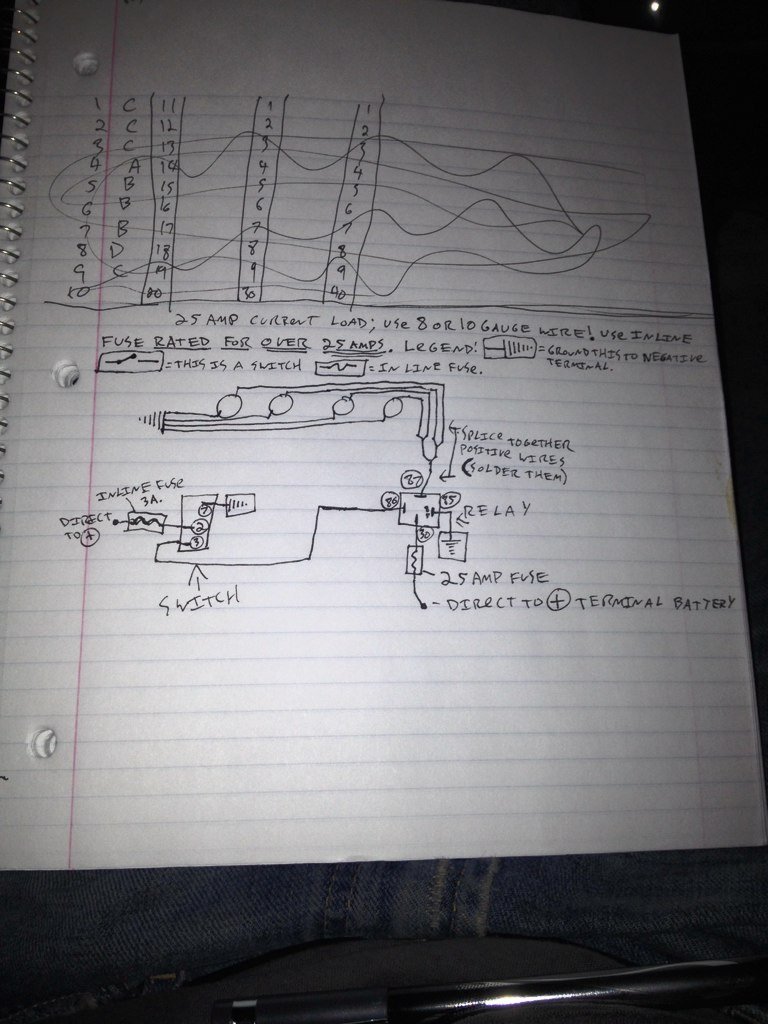 1 C 11 1 1
2 C 12 2 2
3 C 13 3 3
4 A 14 4 4
5 B 15 5 5
6 B 16 6 6
7 B 17 7 7
8 D 18 8 8
9 C 19 9 9
10 20 30 40
25 AMP CURRENT LOAD; USE 8 OR 10 GAUGE WIRE! USE INLINE
FUSE RATED FOR OVER 25 AMPS. LEGEND: = GROUND THIS TO NEGATIVE
TERMINAL.
= THIS IS A SWITCH = IN LINE FUSE.
SPLICE TOGETHER
POSITIVE WIRES
(SOLDER THEM)
87
86 85
30
RELAY
INLINE FUSE
3A.
DIRECT
TO +
2
3
SWITCH
25 AMP FUSE
- DIRECT TO + TERMINAL BATTERY